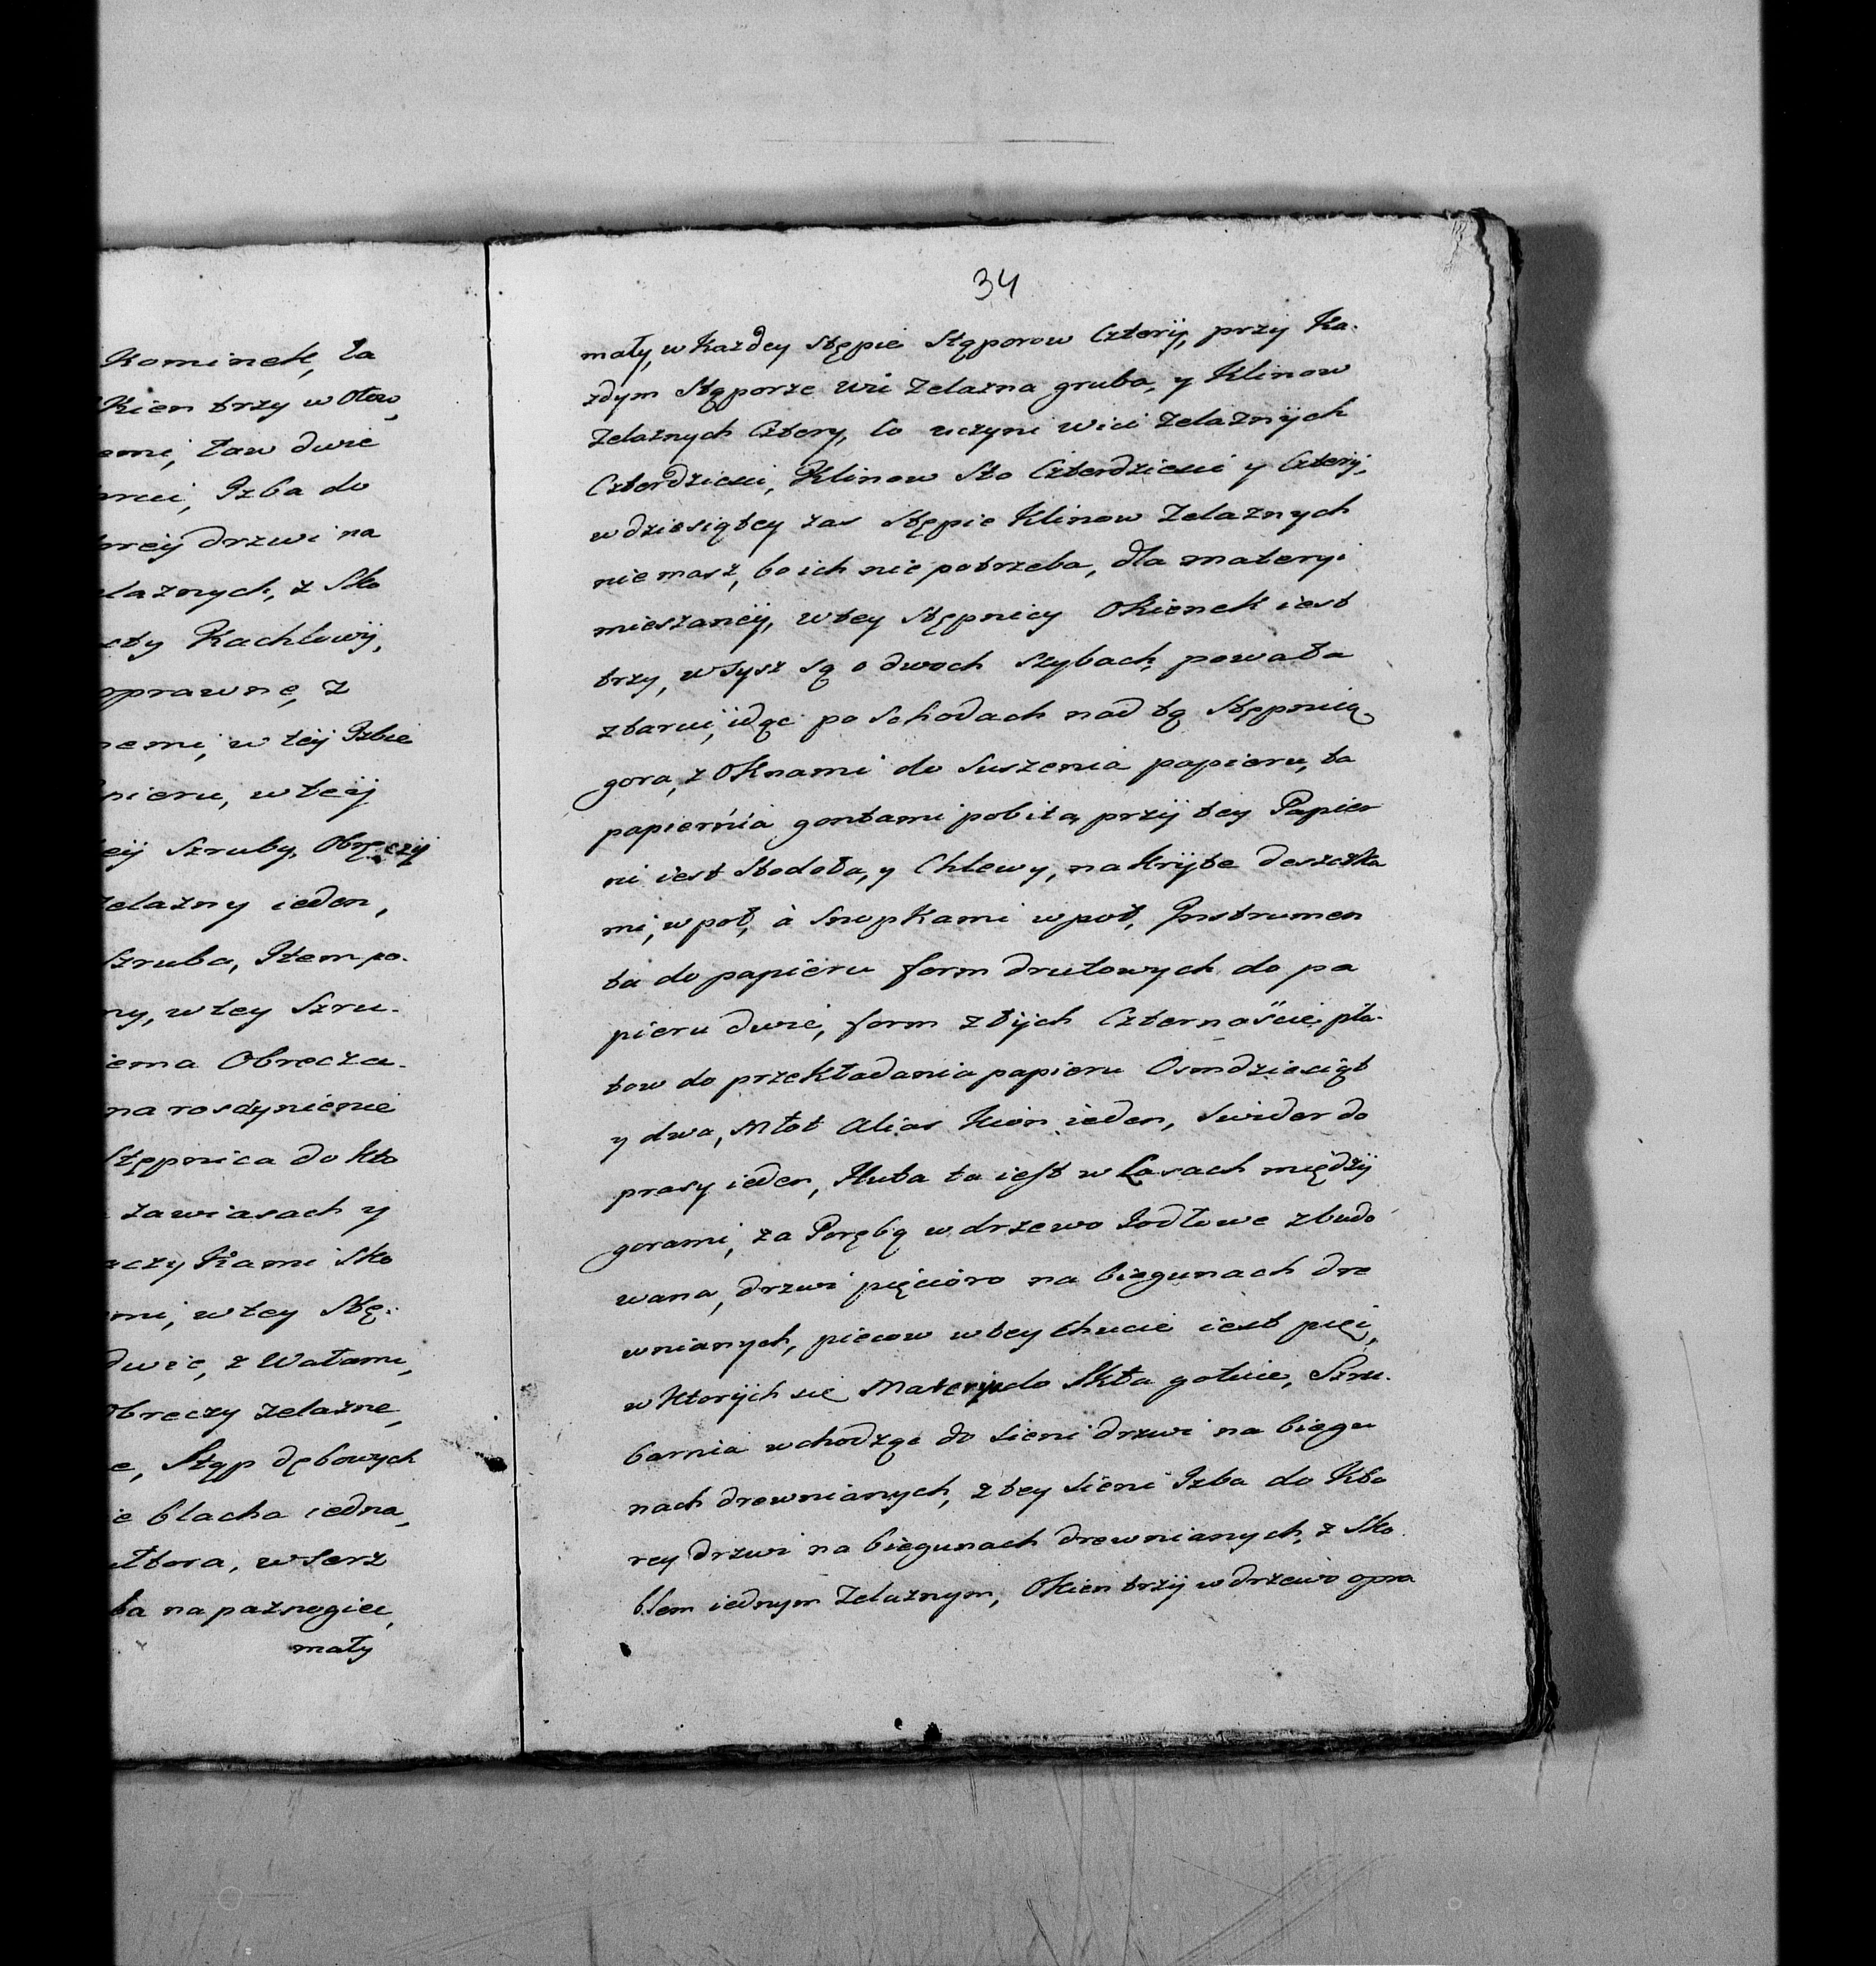 Kominek, ta
Kien trzy w Ołow,
emi, ław dwie
arcic, Izba do
orey drzwi na
elaznych, z Sko
sty Kachlowy,
oprawne, z
nemi, w tey Izbie
pieru, w tey
ey Szruby, Obręczy
elazny ieden,
Szruba, Item po-
ny, w tey Szru-
iema Obręcza-
na rosczynienie
Stępnica do Kto
zawiasach y
aczykami Sko
mi, w tey Stę-
dwie, z Wałami,
Obręczy zelazne,
e, Stąp dębowych
ie blacha iedna,
ułtora, w szerz
ba na paznogiec,
mały
34
mały, w Kazdey stępie Stąporow Cztery, przy Ka-
zdym Stąporze wić zelazna gruba, y Klinow
zelaznych Cztery, Co uczyni wici zelaznych
Czterdziesci, Klinow Sto Czterdziesci y Cztery,
w dziesiątey zas stępie Klinow zelaznych
nie masz, bo ich nie potrzeba, dla materyi
mieszaney, w tey stępnicy Okienek iest
trzy, wsysz są o dwoch szybach, powała
z tarcic, idąc po Schodach nad tą Stępnicą
gora, z Oknami do Suszenia papieru, ta
papiernia gontami pobita, przy tey Papier
ni iest Stodoła, y Chlewy, nakryte deszczka
mi, w poł, à Snopkami w poł, Instrumen
ta do papieru form drutowych do pa
pieru dwie, form złych Czternaście, pła-
tow do przekładania papieru Osmdziesiąt
y dwa, Młot Alias Kion ieden, Swider do
prasy ieden, Huta ta iest w Lasach między
gorami, za Porębą w drzewo Jodłowe zbudo
wana, drzwi pięcioro na biegunach dre
wnianych, piecow w tey chucie iest pięć,
w Ktorych się Materya do Skła gotuie, Szru-
barnia wchodząc do Sieni drzwi na biegu
nach drewnianych, z tey Sieni Izba do Kto
rey drzwi na biegunach drewnianych, z Sko
blem iednym zelaznym, Okien trzy w drzewo opra